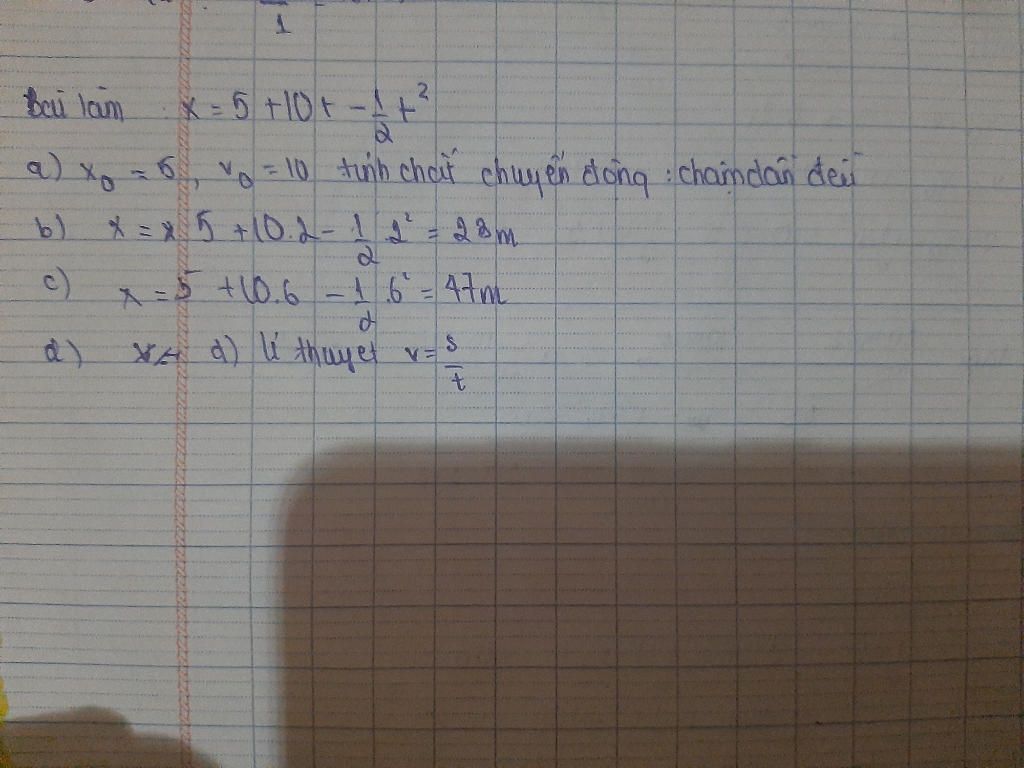 1
Bài làm x = 5 + 10t - 1/2 t²
a) x₀ = 5, v₀ = 10 tính chất chuyển động : chậm dần đều
b) x = 5 + 10.2 - 1/2 2² = 23m
c) x = 5 + 10.6 - 1/2 .6² = 47m
d) d) lí thuyết v = s/t